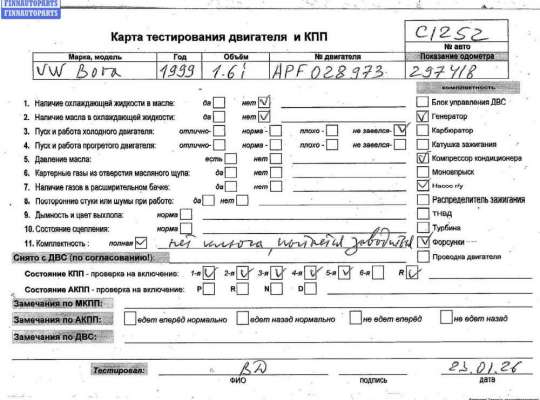 FINNAUTOPARTS
FINNAUTOPARTS
Карта тестирования двигателя и КПП
C1252
№ авто
Марка, модель Год Объём № двигателя Показание одометра
VW Bora 1999 1.6i APF028973 297418
комплектность
1. Наличие охлаждающей жидкости в масле: да нет
2. Наличие масла в охлаждающей жидкости: да нет
3. Пуск и работа холодного двигателя: отлично- норма - плохо - не завелся-
4. Пуск и работа прогретого двигателя: отлично- норма - плохо - не завелся-
5. Давление масла: есть нет
6. Картерные газы из отверстия масляного щупа: да нет
7. Наличие газов в расширительном бачке: да нет
8. Посторонние стуки или шумы при работе: да нет
9. Дымность и цвет выхлопа: норма
10. Состояние сцепления: норма
11. Комплектность : полная нет ключа, заводится
Блок управления ДВС
Генератор
Карбюратор
Катушка зажигания
Компрессор кондиционера
Моновпрыск
Насос г/у
Распределитель зажигания
ТНВД
Турбина
Форсунки
Проводка двигателя
Снято с ДВС (по согласованию!):
Состояние КПП - проверка на включение: 1-я 2-я 3-я 4-я 5-я 6-я R
Состояние АКПП - проверка на включение: P R N D
Замечания по МКПП:
Замечания по АКПП: едет вперёд нормально едет назад нормально не едет вперёд не едет назад
Замечания по ДВС:
Тестировал: ВД 23.01.26
ФИО подпись дата